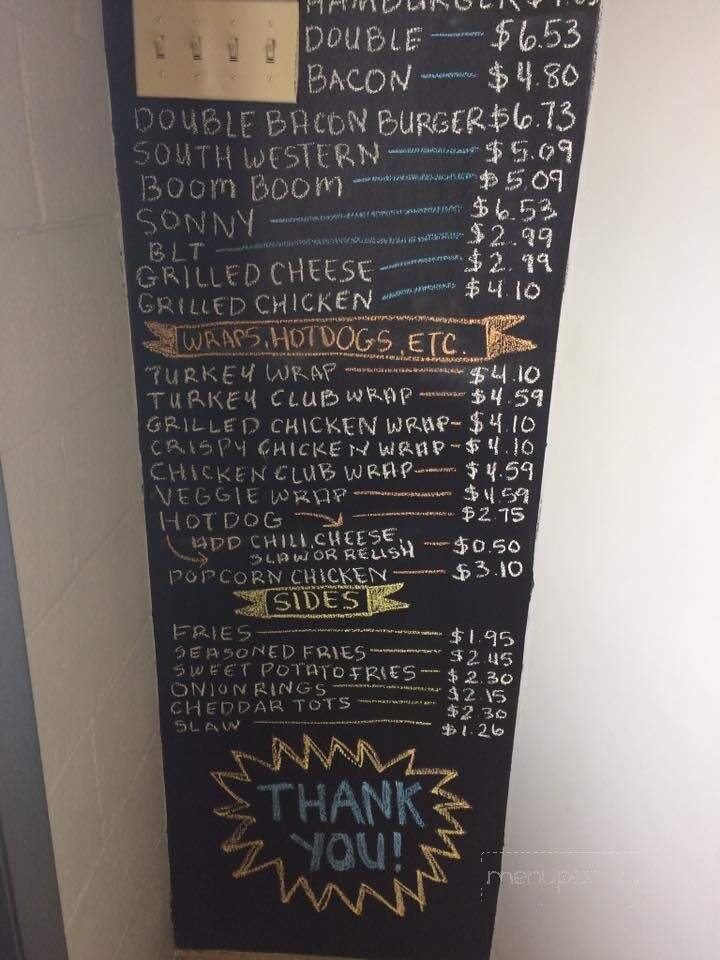 HAMBURGER $4.
DOUBLE $6.53
BACON $4.80
DOUBLE BACON BURGER $6.73
SOUTH WESTERN $5.09
BOOM BOOM $5.09
SONNY $6.53
BLT $2.99
GRILLED CHEESE $2.99
GRILLED CHICKEN $4.10
WRAPS, HOTDOGS, ETC.
TURKEY WRAP $4.10
TURKEY CLUB WRAP $4.59
GRILLED CHICKEN WRAP - $4.10
CRISPY CHICKEN WRAP - $4.10
CHICKEN CLUB WRAP $4.59
VEGGIE WRAP $4.59
HOTDOG $2.75
ADD CHILI, CHEESE, SLAW OR RELISH - $0.50
POPCORN CHICKEN $3.10
SIDES
FRIES $1.95
SEASONED FRIES $2.45
SWEET POTATO FRIES $2.30
ONION RINGS $2.15
CHEDDAR TOTS $2.30
SLAW $1.26
THANK
YOU!